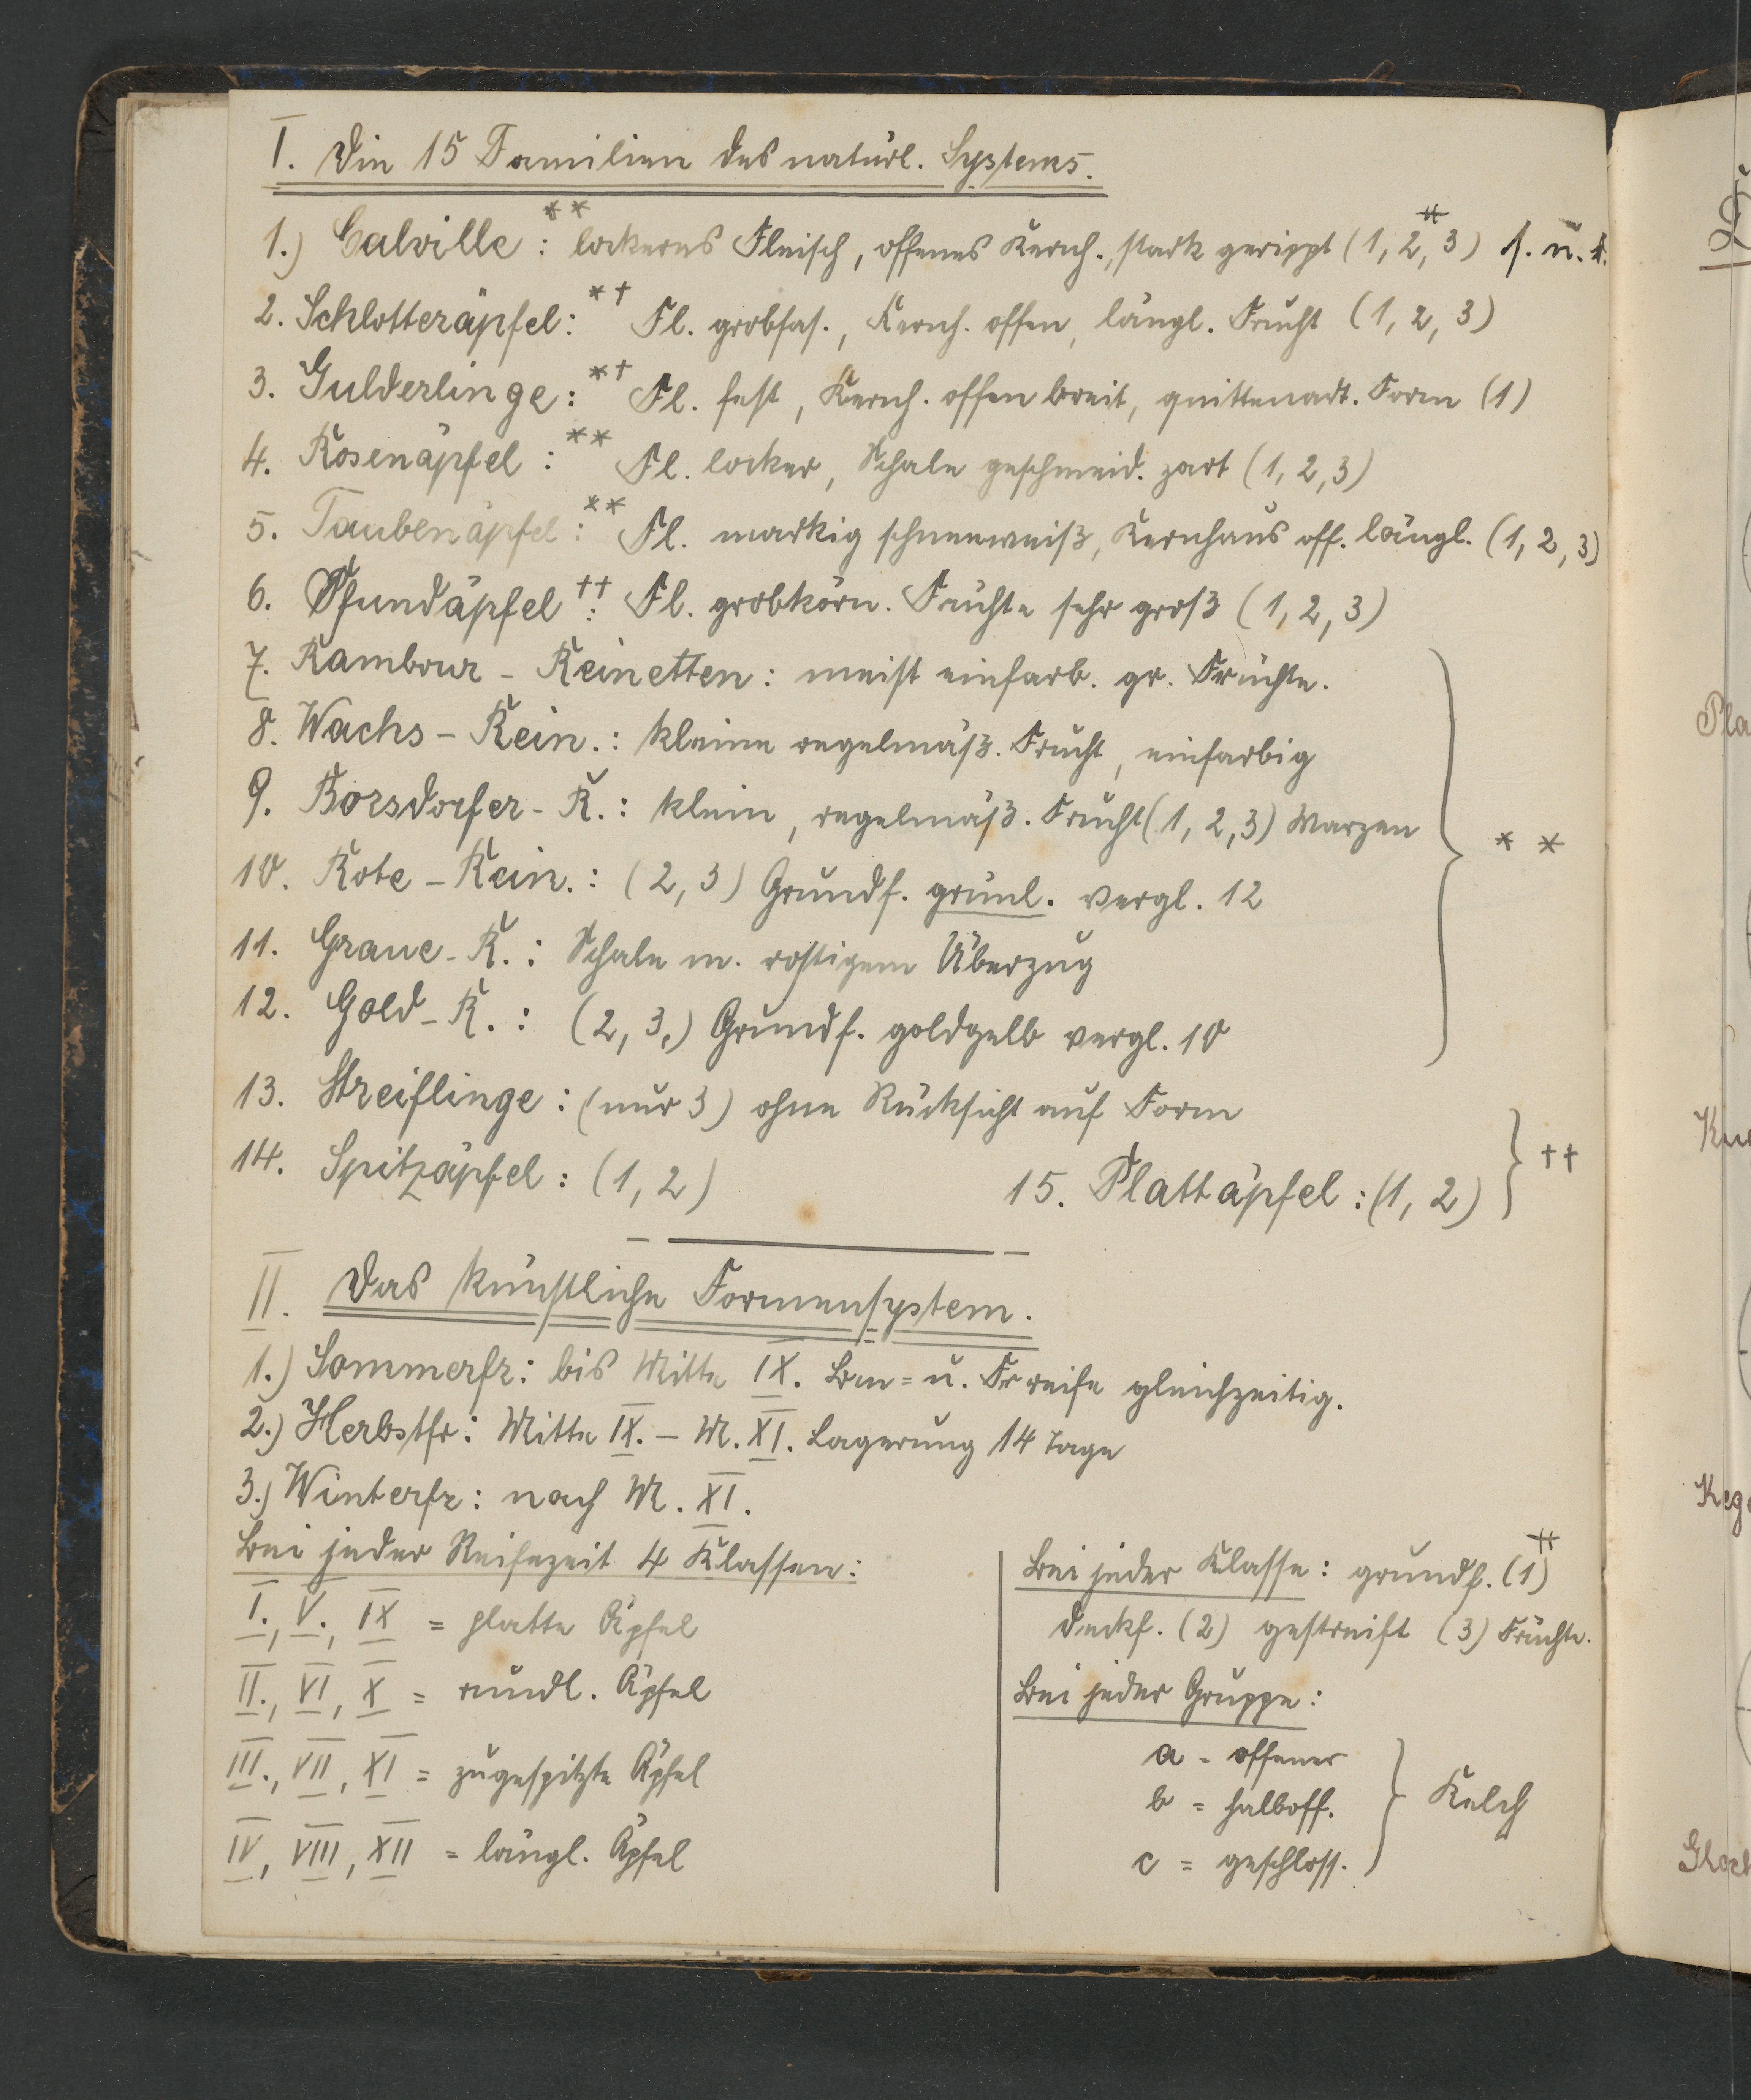 I. Die 15 Familien des natürl. Systems.
1.) Calville: ** lockeres Fleisch, offenes Kernh., stark gerippt (1, 2, 3) ⧺ s. u. ⧺
2. Schlotteräpfel: *† Fl. grobfas., Kernh. offen, längl. Frucht (1, 2, 3)
3. Gulderlinge: *† Fl. fest, Kernh. offen breit, quittenart. Form (1)
4. Rosenäpfel: ** Fl. locker, Schale geschmeid. zart (1, 2, 3)
5. Taubenäpfel: ** Fl. markig schneeweiß, Kernhaus off. längl. (1, 2, 3)
6. Pfundäpfel ††: Fl. grobkörn. Früchte sehr groß (1, 2, 3)
7. Rambour-Reinetten: meist einfarb. gr. Früchte.
8. Wachs-Rein.: kleine regelmäß. Frucht, einfarbig
9. Borsdorfer-R.: klein, regelmäß. Frucht (1, 2, 3) Warzen
* *
10. Rote-Rein.: (2, 3) Grundf. grünl. vergl. 12
11. Graue-R.: Schale m. rostigem Überzug
12. Gold-R.: (2, 3,) Grundf. goldgelb vergl. 10
13. Streiflinge: (nur 3) ohne Rücksicht auf Form
14. Spitzäpfel: (1, 2) 15. Plattäpfel: (1, 2)
††
II. Das künstliche Formensystem.
1.) Sommerfr: bis Mitte IX. Bm= u. Fr reife gleichzeitig.
2.) Herbstfr: Mitte IX. – M. XI. Lagerung 14 Tage
3.) Winterfr: nach M. XI.
Bei jeder Reifezeit 4 Klassen:
I., V., IX = platte Äpfel
II., VI, X = rundl. Äpfel
III., VII, XI = zugespitzte Äpfel
IV, VIII, XII = längl. Äpfel
Bei jeder Klasse: grundf. (1) ⧺
deckf. (2) gestreift (3) Früchte.
Bei jeder Gruppe:
a = offener
b = halboff.
Kelch
c = geschloss.
Pla
Kegel